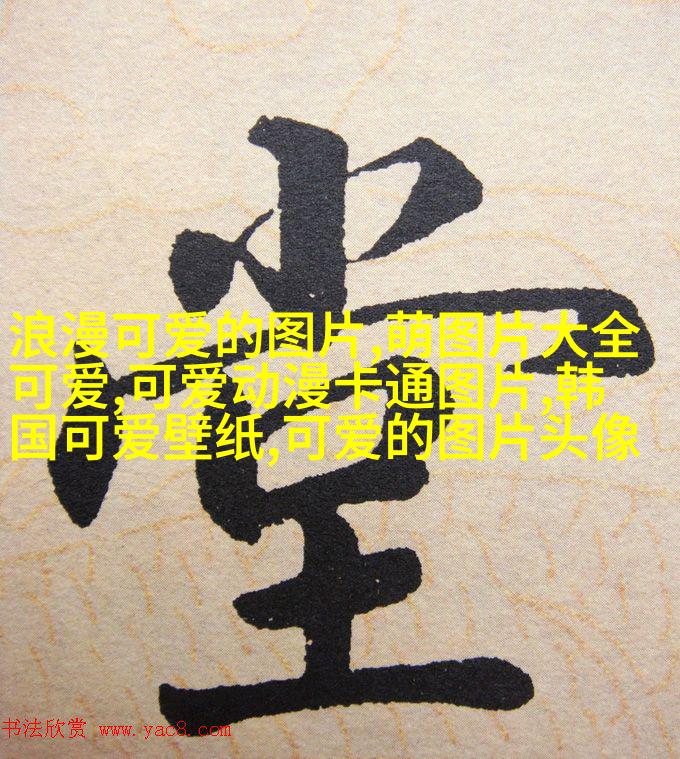 堂
浪漫可爱的图片,萌图片大全
可爱,可爱动漫卡通图片,韩
国可爱壁纸,可爱的图片头像
书法欣赏 www.yac8.com